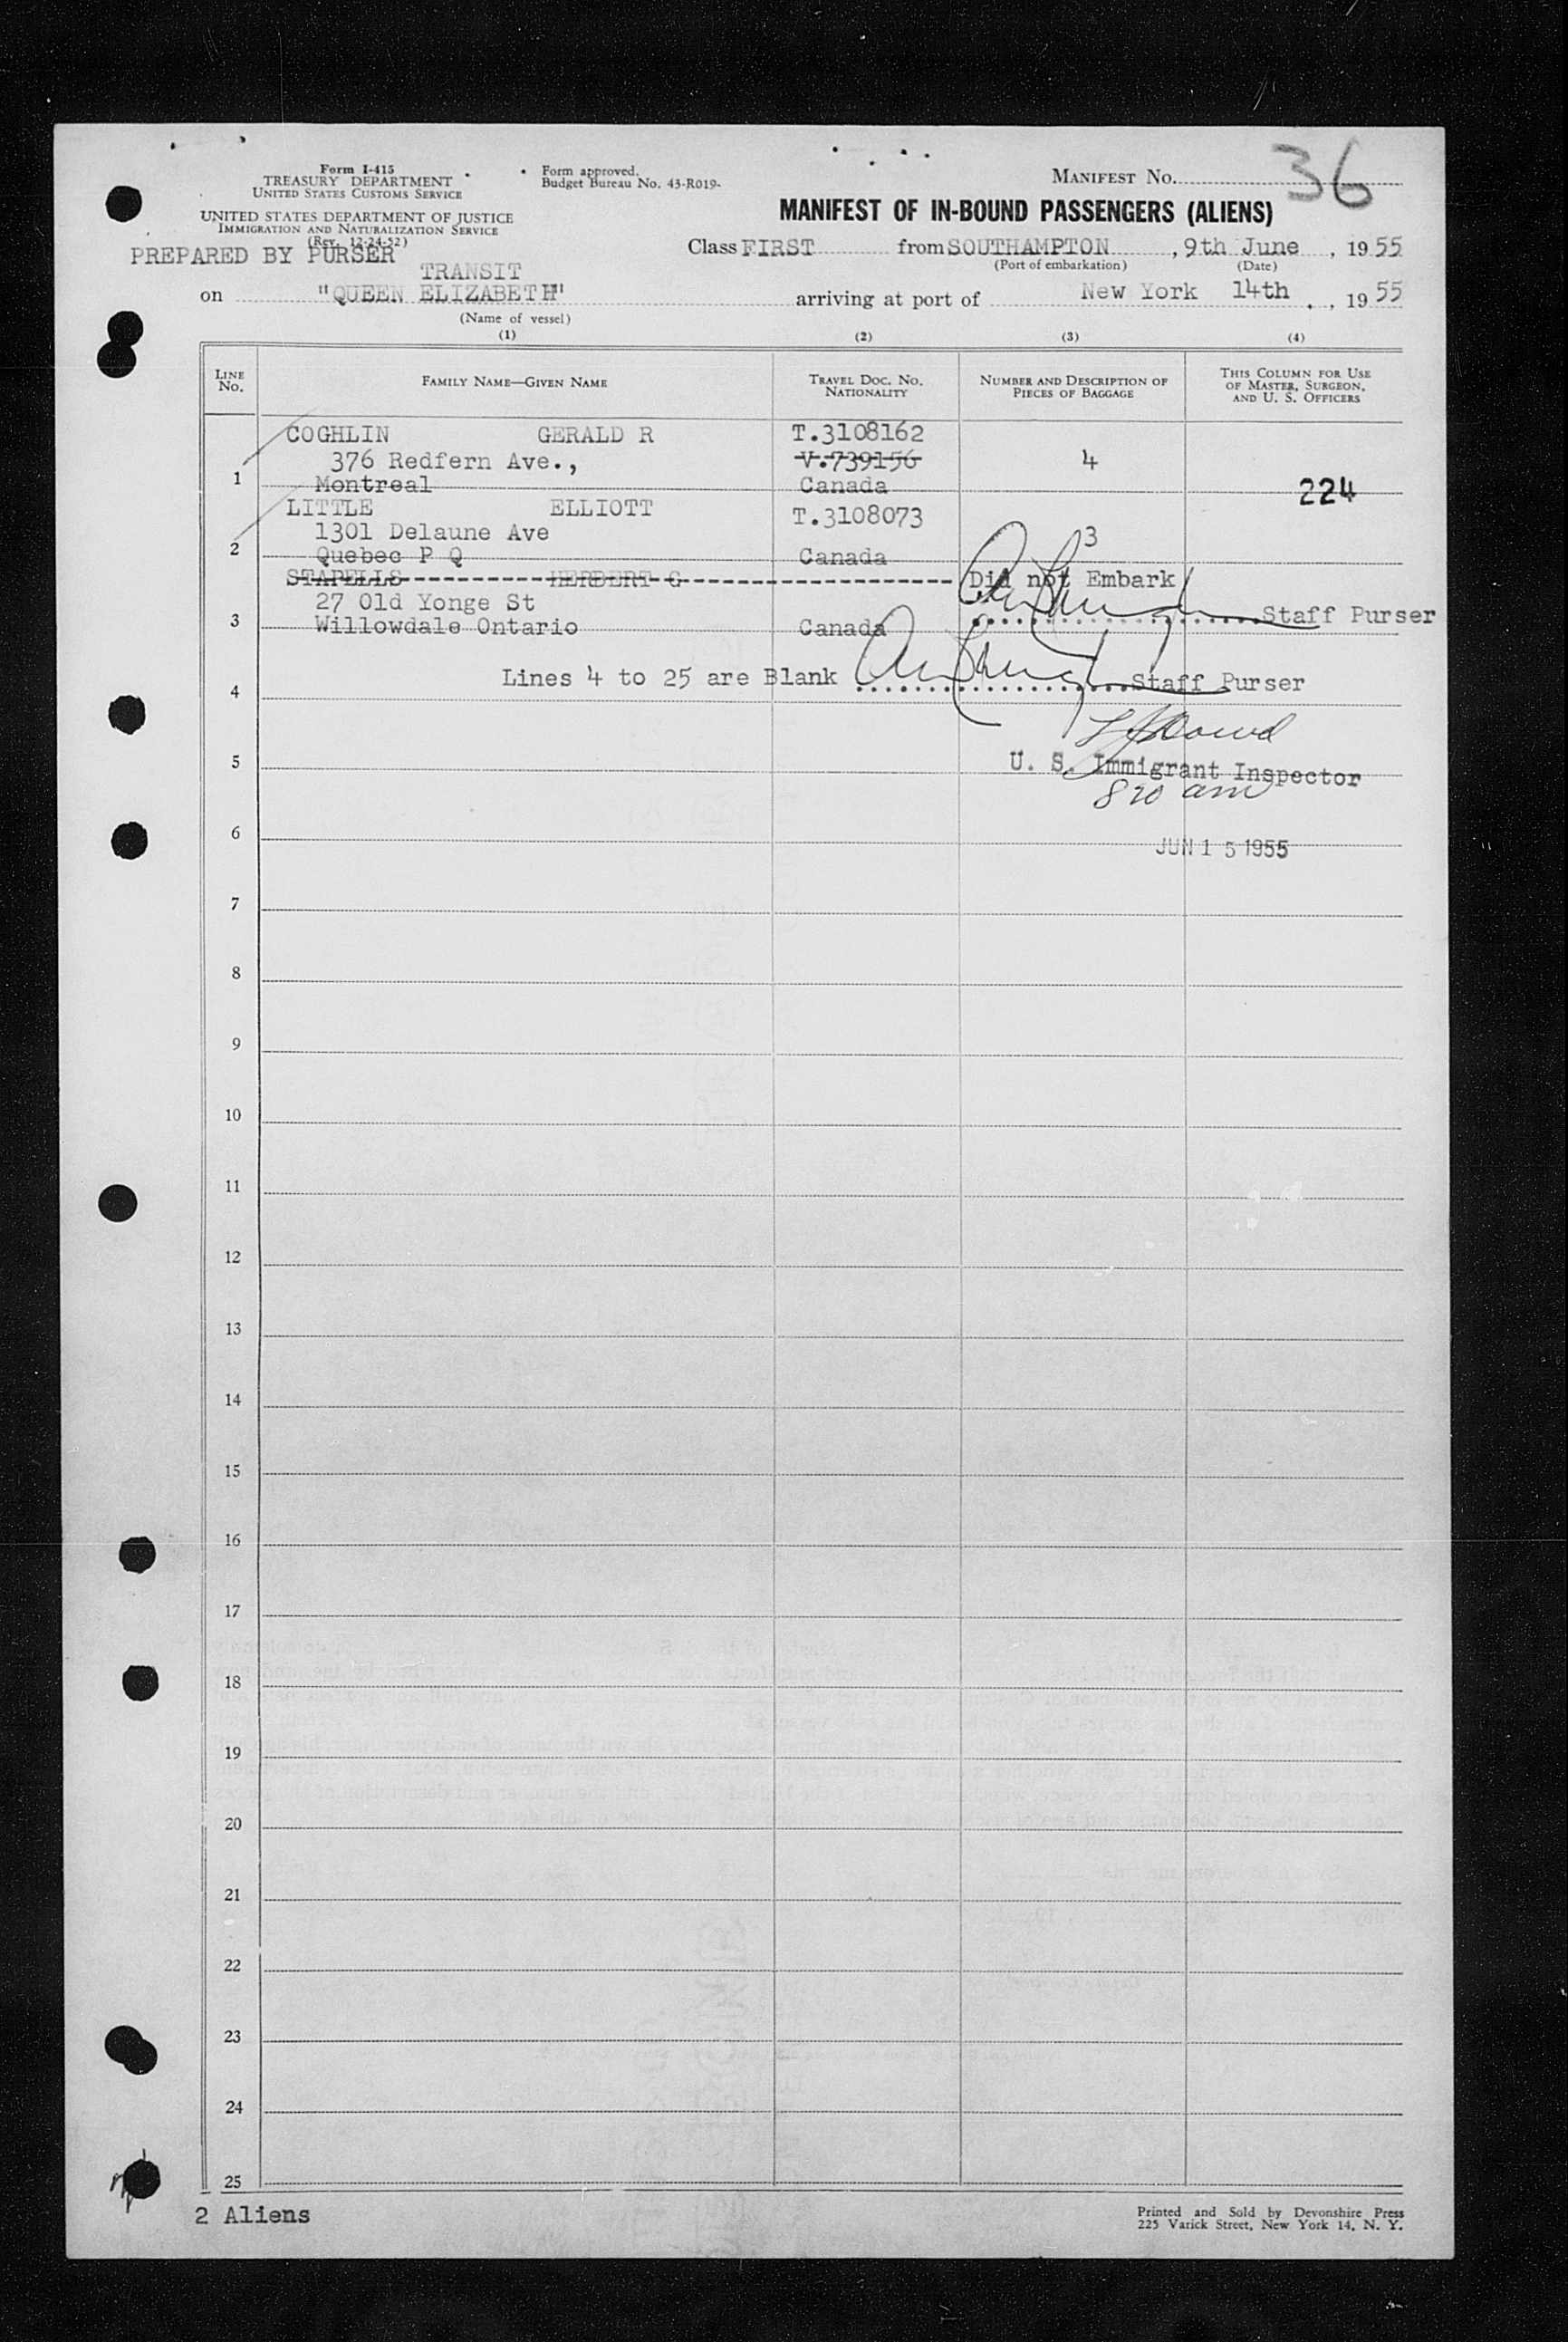 36
Form I-415
TREASURY DEPARTMENT
UNITED STATES CUSTOMS SERVICE
Form approved.
Budget Bureau No. 43-R019-
MANIFEST No.
UNITED STATES DEPARTMENT OF JUSTICE
IMMIGRATION AND NATURALIZATION SERVICE
(Rev. 12-24-52)
MANIFEST OF IN-BOUND PASSENGERS (ALIENS)
PREPARED BY PURSER
Class FIRST from SOUTHAMPTON, 9th June, 1955
(Port of embarkation) (Date)
TRANSIT
on "QUEEN ELIZABETH" arriving at port of New York 14th, 1955
(Name of vessel)
(1) (2) (3) (4)
LINE No. FAMILY NAME—GIVEN NAME TRAVEL DOC. No. NATIONALITY NUMBER AND DESCRIPTION OF PIECES OF BAGGAGE THIS COLUMN FOR USE OF MASTER, SURGEON, AND U. S. OFFICERS
COGHLIN GERALD R T.3108162
376 Redfern Ave., V.739156 4
1 Montreal Canada 224
LITTLE ELLIOTT T.3108073
1301 Delaune Ave 3
2 Quebec P Q Canada
STAPELLS HERBERT G Did not Embark
27 Old Yonge St Staff Purser
3 Willowdale Ontario Canada
Lines 4 to 25 are Blank Staff Purser
4
5 U. S. Immigrant Inspector
8 20 am
6 JUN 15 1955
7
8
9
10
11
12
13
14
15
16
17
18
19
20
21
22
23
24
25
2 Aliens
Printed and Sold by Devonshire Press
225 Varick Street, New York 14, N. Y.